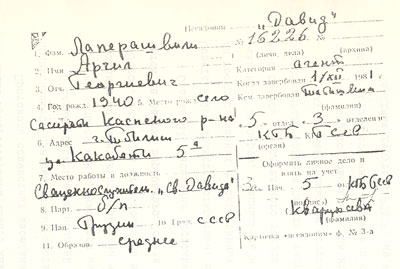 Псевдоним „Давид"
№ 16226 №
1. Фам. Лаперашвили (личн. дела) (архива)
2. Имя Арчил Категория агент
3. Отч. Георгиевич Когда завербован 1/XII 1981 г.
4. Год рожд. 1940 5. Место рожд. село Кем завербован
Каспского р-на (фамилия)
5 - отдел 3 - отделение
6. Адрес г. Тбилиси КГБ
ул. Какабети 5а (орган)
7. Место работы и должность Оформить личное дело и
взять на учет
Священнослужитель „Св. Давида" Нач. 5 от. КГБ ГССР
8. Парт. б/п
9. Нац. Грузин 10. Граж. СССР (фамилия)
11. Образов. среднее Карточка «псевдоним» ф. № 3-а